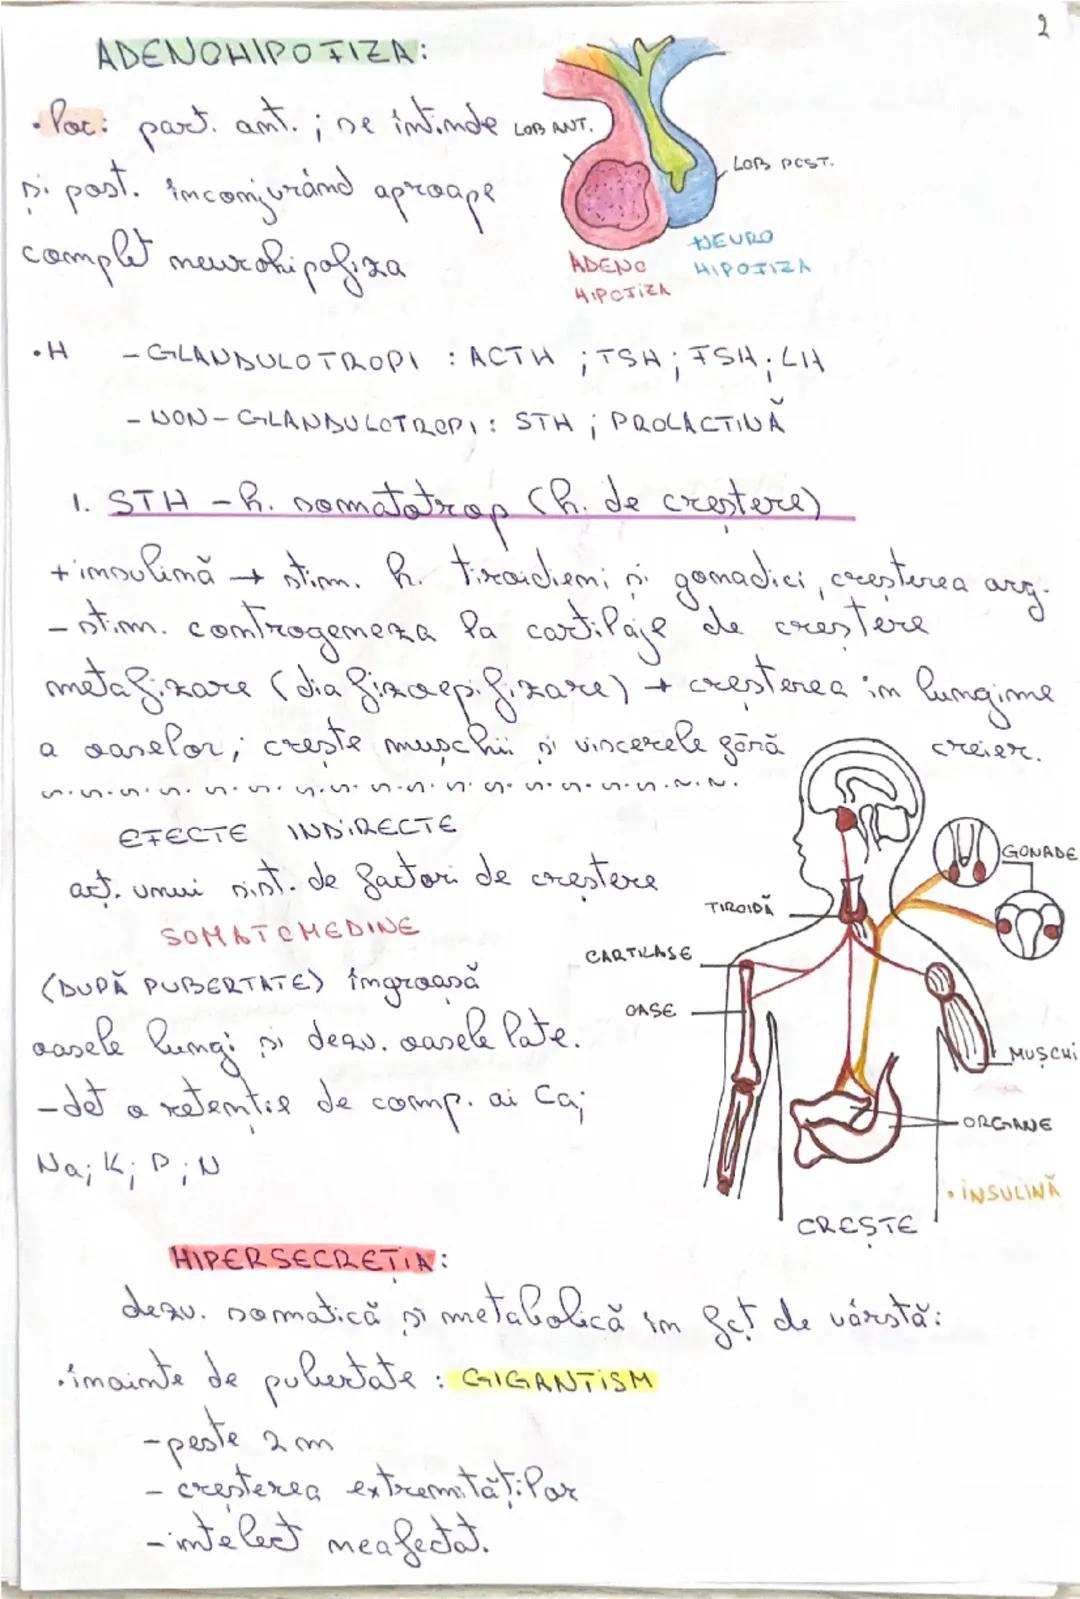 2
ADENOHIPOFIZA:
• loc: part. ant. ; se întinde
și post. înconjurând aproape
complet neurohipofiza
LOB ANT.
LOB POST.
NEURO
HIPOFIZA
ADENO
HIPOFIZA
• H - GLANDULOTROPI : ACTH ; TSH ; FSH ; LH
- NON-GLANDULOTROPI : STH ; PROLACTINĂ
1. STH - h. somatotrop (h. de creștere)
+ insulină → stim. h. tiroidieni și gonadici, creșterea org.
- stim. controgeneza la cartilaje de creștere
metafizare (diafizoepifizare) → creșterea in lungime
a oaselor; crește mușchii și viscerele fără creier.
EFECTE INDIRECTE
act. unui sist. de factori de creștere
SOMATOMEDINE
(DUPĂ PUBERTATE) îngroașă
oasele lungi și dezv. oasele late.
- det o retenție de comp. ai Ca;
Na; K; P; N
TIROIDĂ
GONADE
CARTILAJE
OASE
MUȘCHI
ORGANE
• INSULINĂ
CREȘTE
HIPERSECREȚIA:
dezv. somatică și metabolică in fct de vârstă:
• înainte de pubertate : GIGANTISM
- peste 2 m
- creșterea extremităților
- intelect neafectat.